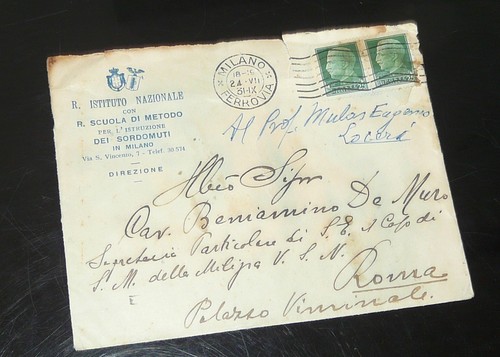 R. ISTITUTO NAZIONALE
CON
R. SCUOLA DI METODO
PER L'ISTRUZIONE
DEI SORDOMUTI
IN MILANO
Via S. Vincenzo, 7 - Telef. 30-574
DIREZIONE
MILANO
18-19
24 - VII
31-IX
FERROVIA
Al Prof. Mulas Eugenio
Sigr
Cav. Beniamino De Muro
Segretario Particolare di S. E. il Capo di
S. M. della Milizia V. S. N.
Roma
Palazzo Viminale.